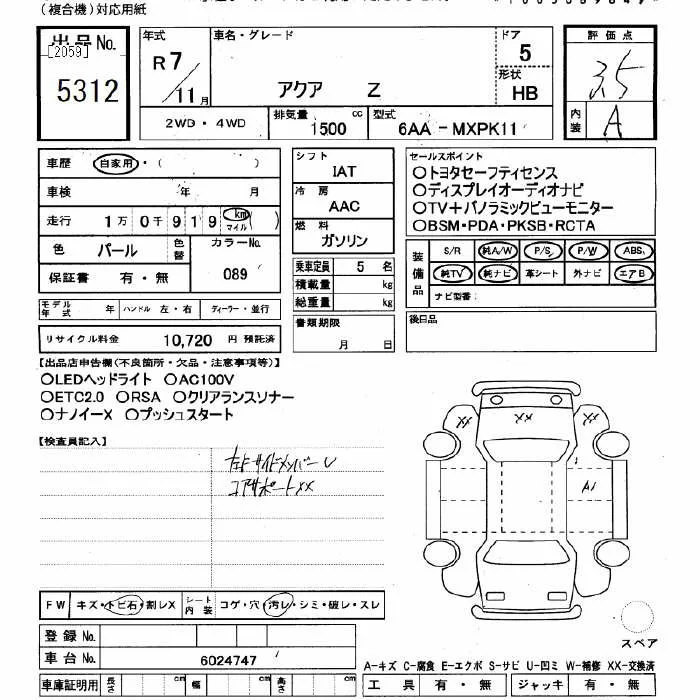 (複合機)対応用紙
出品No.
[2059]
5312
年式
R7/11月
車名・グレード
アクア Z
ドア
5
形状
HB
評価点
3.5
内装
A
2WD・4WD
排気量
1500 cc
型式
6AA-MXPK11
車歴 自家用・( )
車検 年 月
走行 1万0千919 km マイル ( )
色 パール 色替
カラーNo.
089
保証書 有・無
モデル年式 年 ハンドル 左・右 ディーラー・並行
リサイクル料金 10,720 円 預託済
シフト
IAT
冷房
AAC
燃料
ガソリン
乗車定員 5 名
積載量 kg
総重量 kg
書類期限
月 日
セールスポイント
○トヨタセーフティセンス
○ディスプレイオーディオナビ
○TV+パノラミックビューモニター
○BSM・PDA・PKSB・RCTA
装備品
S/R 純A/W P/S P/W ABS
純TV 純ナビ 革シート 外ナビ エアB
ナビ型番:
後日品
【出品店申告欄(不良箇所・欠品・注意事項等)】
○LEDヘッドライト ○AC100V
○ETC2.0 ○RSA ○クリアランスソナー
○ナノイーX ○プッシュスタート
【検査員記入】
左Fサイドメンバー U
コアサポートXX
XX
XX
XX
A1
FW キズ・トビ石・割レX
シート内装 コゲ・穴・汚レ・シミ・破レ・スレ
登録No.
車台No. 6024747
車庫証明用 長さ cm 幅 cm 高さ cm
スペア
A-キズ C-腐食 E-エクボ S-サビ U-凹ミ W-補修 XX-交換済
工具 有・無 ジャッキ 有・無